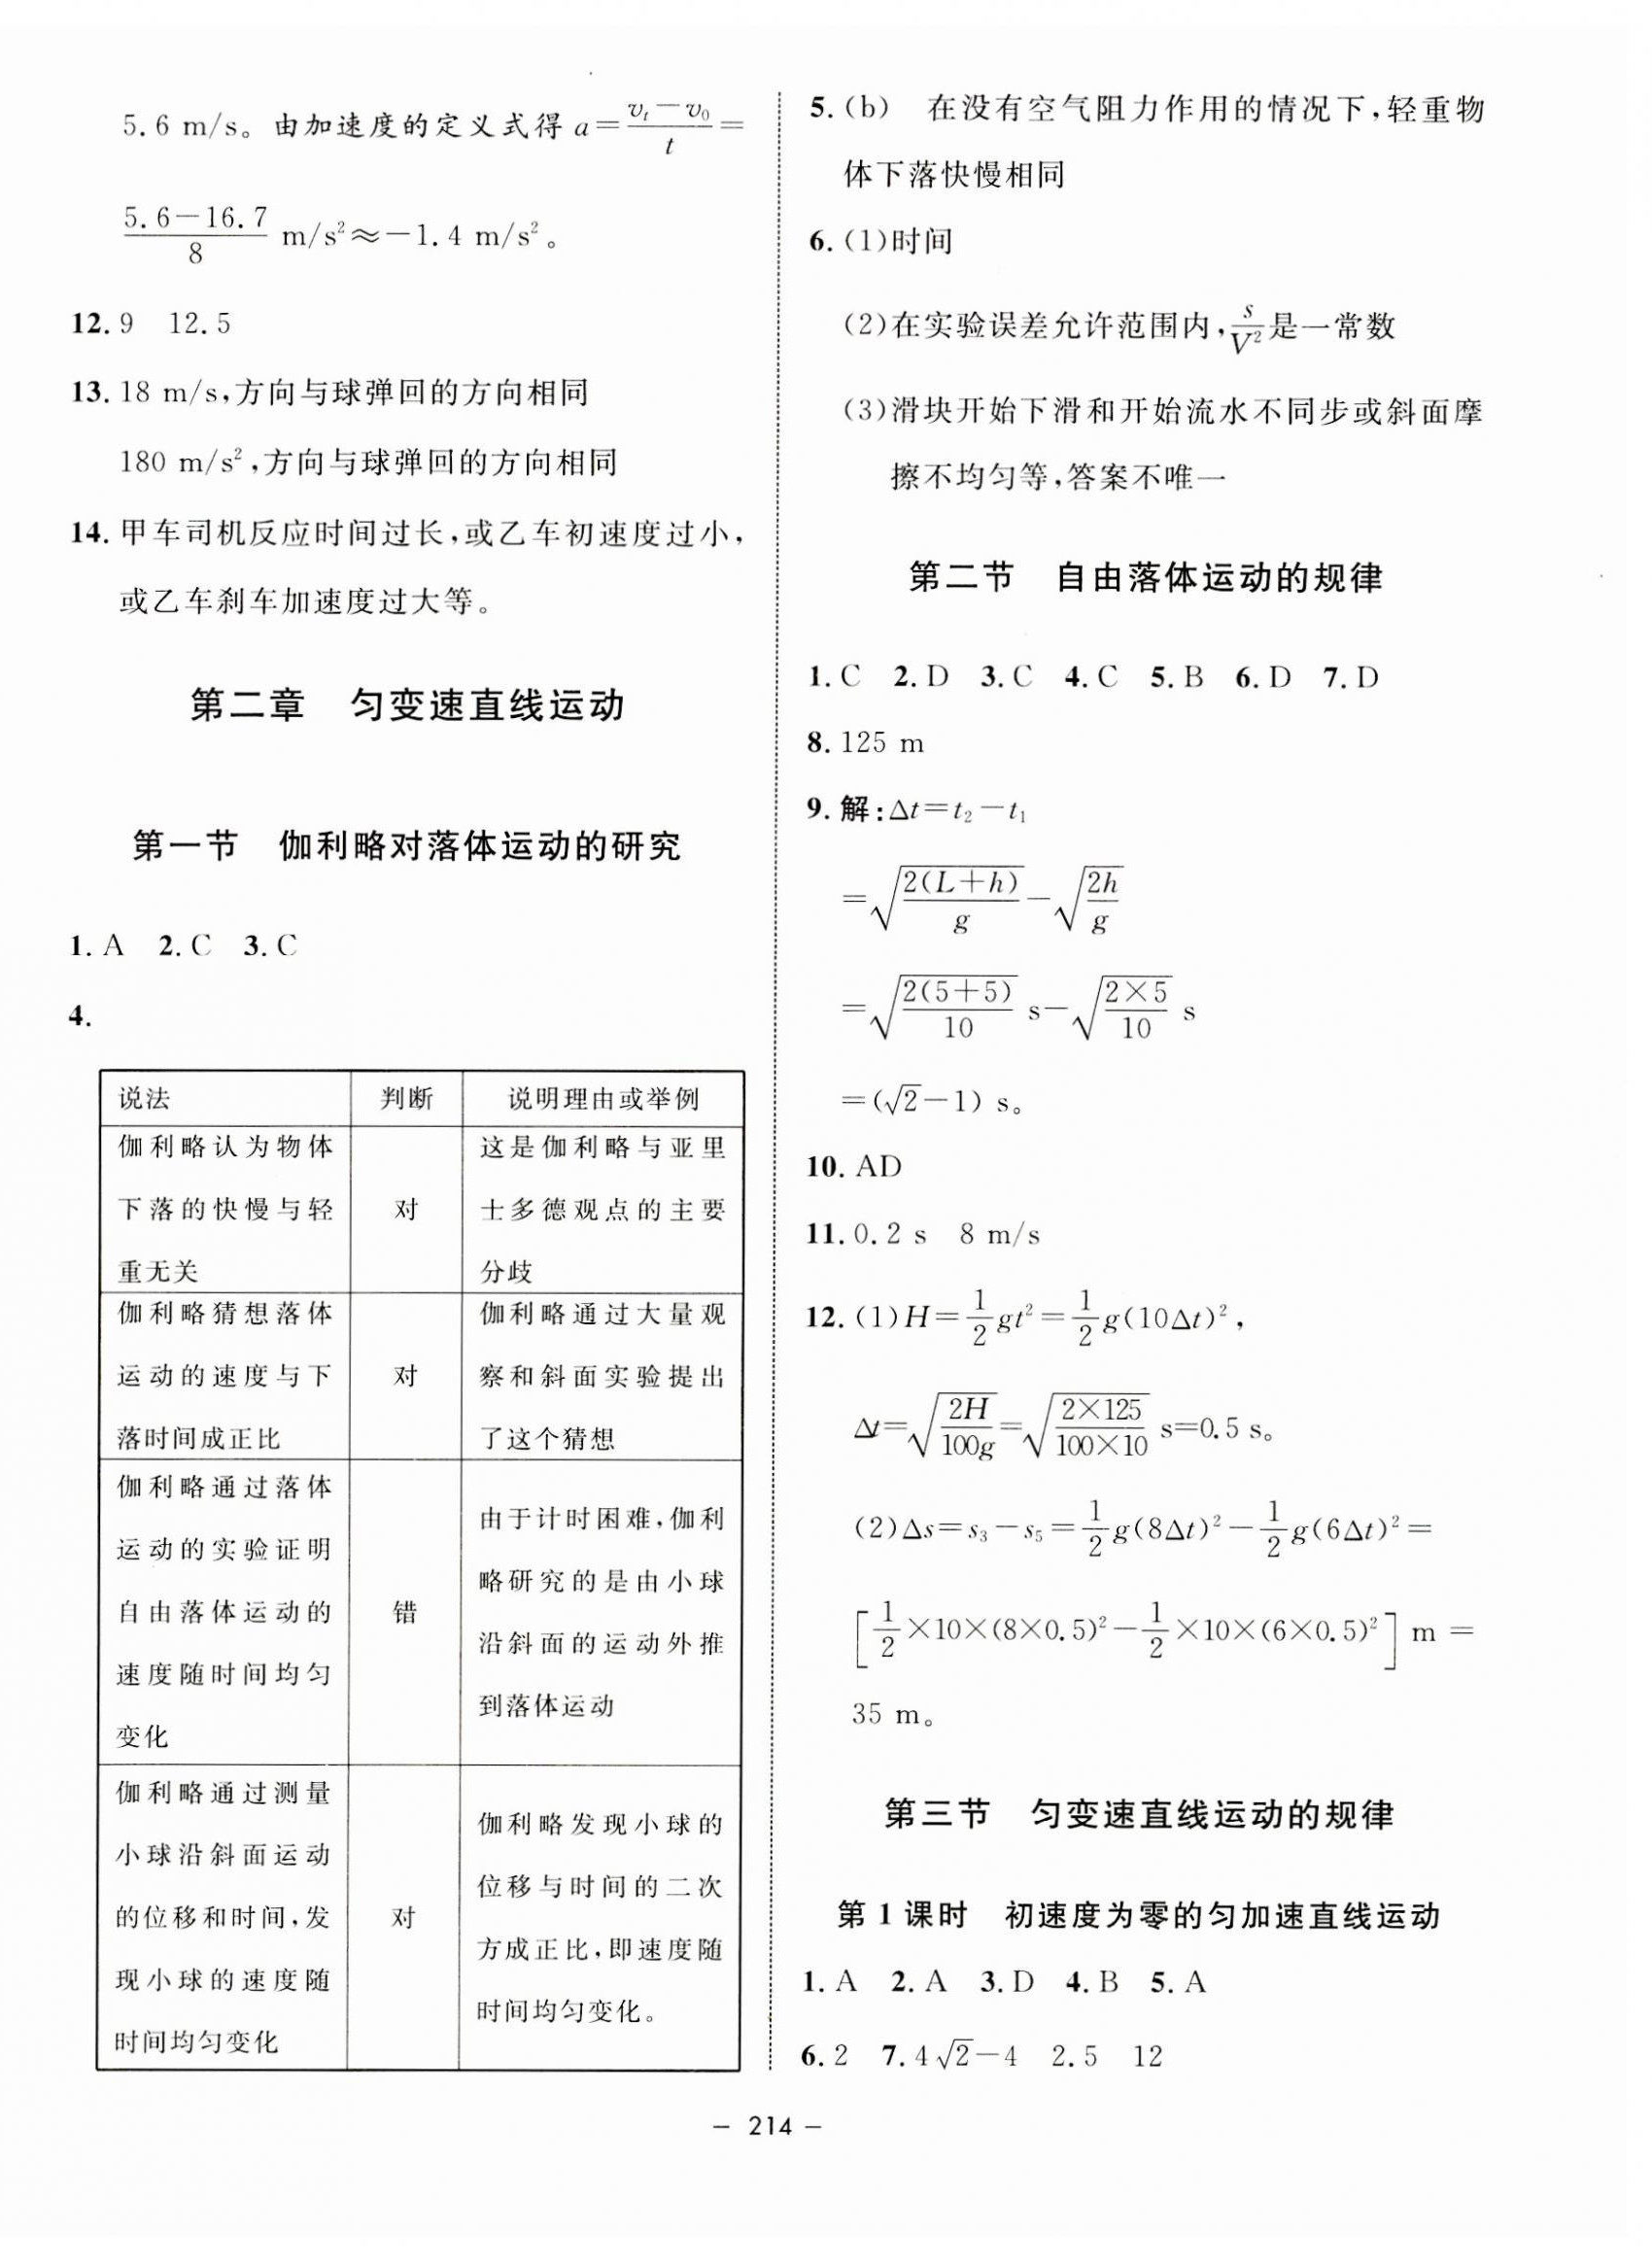 5.6 m/s。由加速度的定义式得 a=(v_t-v_0)/t=
(5.6-16.7)/8 m/s²≈-1.4 m/s²。
12.9 12.5
13.18 m/s,方向与球弹回的方向相同
180 m/s²,方向与球弹回的方向相同
14.甲车司机反应时间过长,或乙车初速度过小,
或乙车刹车加速度过大等。
第二章 匀变速直线运动
第一节 伽利略对落体运动的研究
1.A 2.C 3.C
4.
说法 判断 说明理由或举例
伽利略认为物体
下落的快慢与轻
重无关
对
这是伽利略与亚里
士多德观点的主要
分歧
伽利略猜想落体
运动的速度与下
落时间成正比
对
伽利略通过大量观
察和斜面实验提出
了这个猜想
伽利略通过落体
运动的实验证明
自由落体运动的
速度随时间均匀
变化
错
由于计时困难,伽利
略研究的是由小球
沿斜面的运动外推
到落体运动
伽利略通过测量
小球沿斜面运动
的位移和时间,发
现小球的速度随
时间均匀变化
对
伽利略发现小球的
位移与时间的二次
方成正比,即速度随
时间均匀变化。
5.(b) 在没有空气阻力作用的情况下,轻重物
体下落快慢相同
6.(1)时间
(2)在实验误差允许范围内,s/V²是一常数
(3)滑块开始下滑和开始流水不同步或斜面摩
擦不均匀等,答案不唯一
第二节 自由落体运动的规律
1.C 2.D 3.C 4.C 5.B 6.D 7.D
8.125 m
9.解:Δt=t₂-t₁
=√(2(L+h)/g)-√(2h/g)
=√(2(5+5)/10) s-√(2×5/10) s
=(√2-1) s。
10.AD
11.0.2 s 8 m/s
12.(1)H=1/2gt²=1/2g(10Δt)²,
Δt=√(2H/100g)=√(2×125/100×10) s=0.5 s。
(2)Δs=s₃-s₅=1/2g(8Δt)²-1/2g(6Δt)²=
[1/2×10×(8×0.5)²-1/2×10×(6×0.5)²] m=
35 m。
第三节 匀变速直线运动的规律
第1课时 初速度为零的匀加速直线运动
1.A 2.A 3.D 4.B 5.A
6.2 7.4√2-4 2.5 12
- 214 -